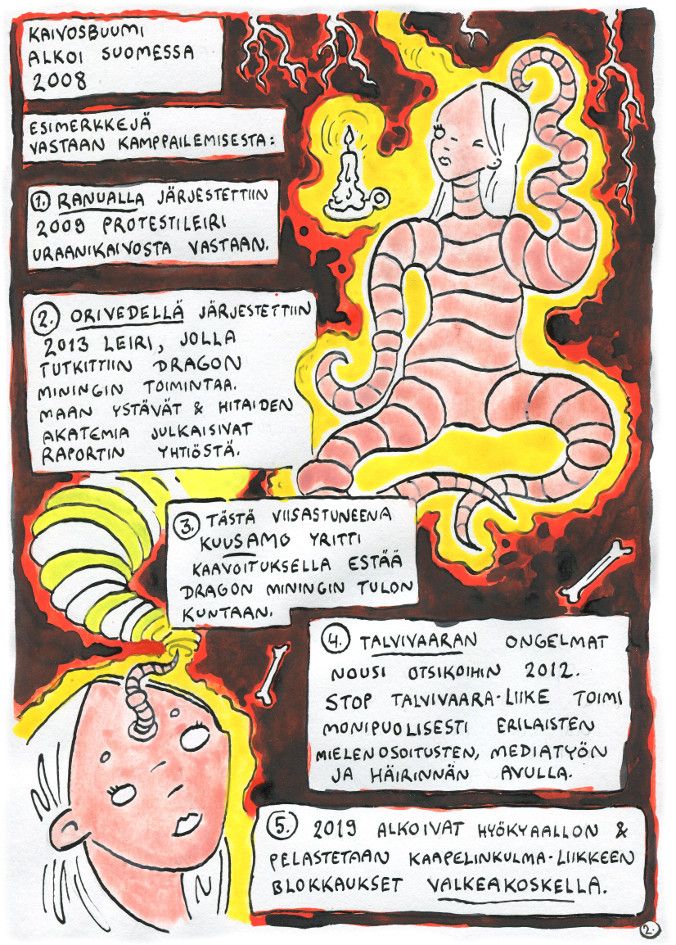 KAIVOSBUUMI
ALKOI SUOMESSA
2008
ESIMERKKEJÄ
VASTAAN KAMPPAILEMISESTA:
1. RANUALLA JÄRJESTETTIIN
2009 PROTESTILEIRI
URAANIKAIVOSTA VASTAAN.
2. ORIVEDELLÄ JÄRJESTETTIIN
2013 LEIRI, JOLLA
TUTKITTIIN DRAGON
MININGIN TOIMINTAA.
MAAN YSTÄVÄT & HITAIDEN
AKATEMIA JULKAISIVAT
RAPORTIN YHTIÖSTÄ.
3. TÄSTÄ VIISASTUNEENA
KUUSAMO YRITTI
KAAVOITUKSELLA ESTÄÄ
DRAGON MININGIN TULON
KUNTAAN.
4. TALVIVAARAN ONGELMAT
NOUSI OTSIKOIHIN 2012.
STOP TALVIVAARA-LIIKE TOIMI
MONIPUOLISESTI ERILAISTEN
MIELENOSOITUSTEN, MEDIATYÖN
JA HÄIRINNÄN AVULLA.
5. 2019 ALKOIVAT HYÖKYAALLON &
PELASTETAAN KAAPELINKULMA-LIIKKEEN
BLOKKAUKSET VALKEAKOSKELLA.
2.